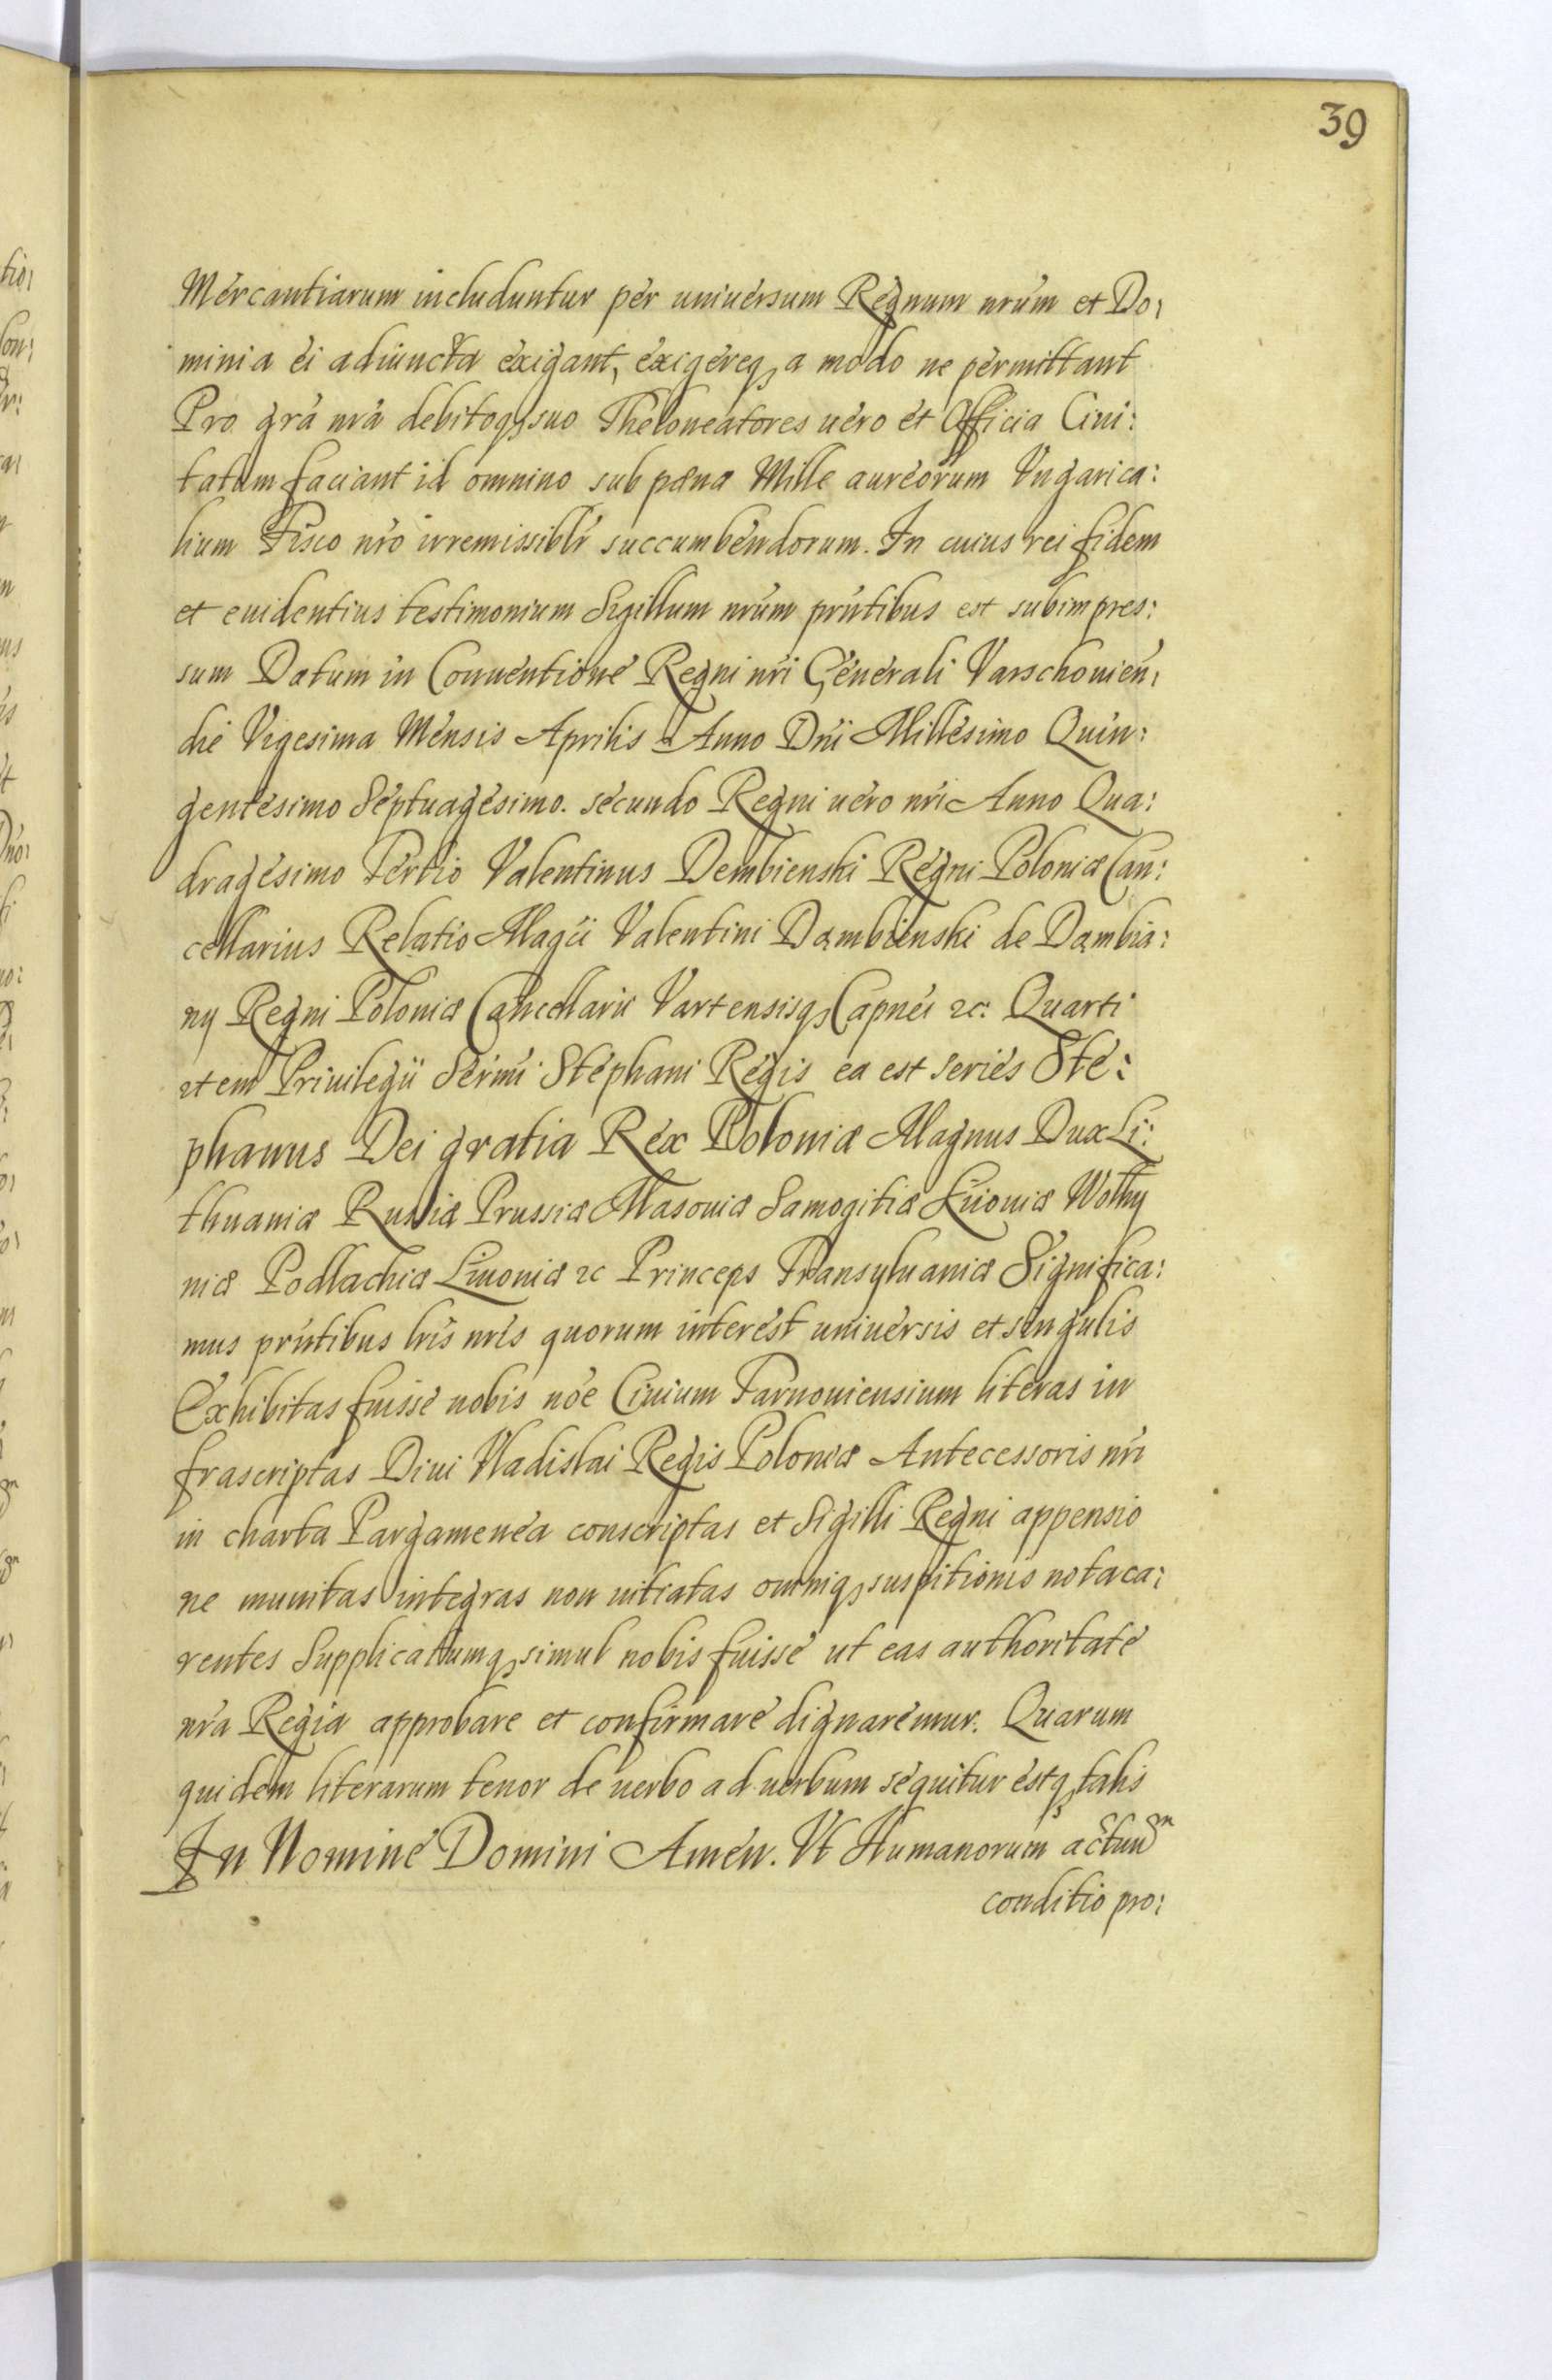 39
Mercantiarum includuntur per uniuersum Regnum nrum et Do,
minia ei adiuncta exigant, exigereq, a modo ne permittant
Pro gra nra debitoq, suo Theloneatores uero et Officia Ciui:
tatum faciant id omnino sub pæna Mille aureorum Vngarica:
lium Fisco nro irremissiblr succumbendorum. In cuius rei fidem
et euidentius testimonium Sigillum nrum prntibus est subimpres:
sum Datum in Conuentione Regni nri Generali Varschouien,
die Vigesima Mensis Aprilis Anno Dni Millesimo Quin:
gentesimo Septuagesimo. secundo Regni uero nri Anno Qua:
dragesimo Tertio Valentinus Dembienski Regni Poloniæ Can:
cellarius Relatio Magci Valentini Dambienski de Dambia:
ny Regni Poloniæ Cancellarii Vartensisq, Capnei &c: Quarti
item Priuilegii Sermi Stephani Regis ea est series Ste:
phanus Dei gratia Rex Poloniæ Magnus Dux Li:
thuaniæ Russiæ Prussiæ Masouiæ Samogitiæ Kiiouiæ Wolhy
niæ Podlachiæ Liuoniæ &c Princeps Transyluaniæ Significa:
mus prntibus lris nris quorum interest uniuersis et singulis
Exhibitas fuisse nobis noe Ciuium Tarnouiensium literas in
frascriptas Diui Vladislai Regis Poloniæ Antecessoris nri
in charta Pargamenea conscriptas et Sigilli Regni appensio
ne munitas integras non uitiatas omniq, suspitionis nota ca:
rentes Supplicatumq, simul nobis fuisse ut eas authoritate
nra Regia approbare et confirmare dignaremur. Quarum
quidem literarum tenor de uerbo ad uerbum sequitur estq, talis
In Nomine Domini Amen. Vt Humanorum actuu
conditio pro: